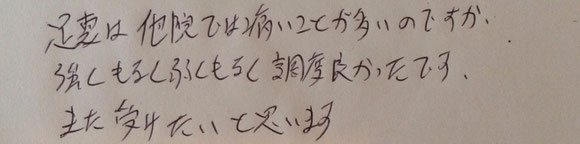 足裏は他院では痛いことが多いのですが、
強くもなく弱くもなく調度良かったです、
また受けたいと思います